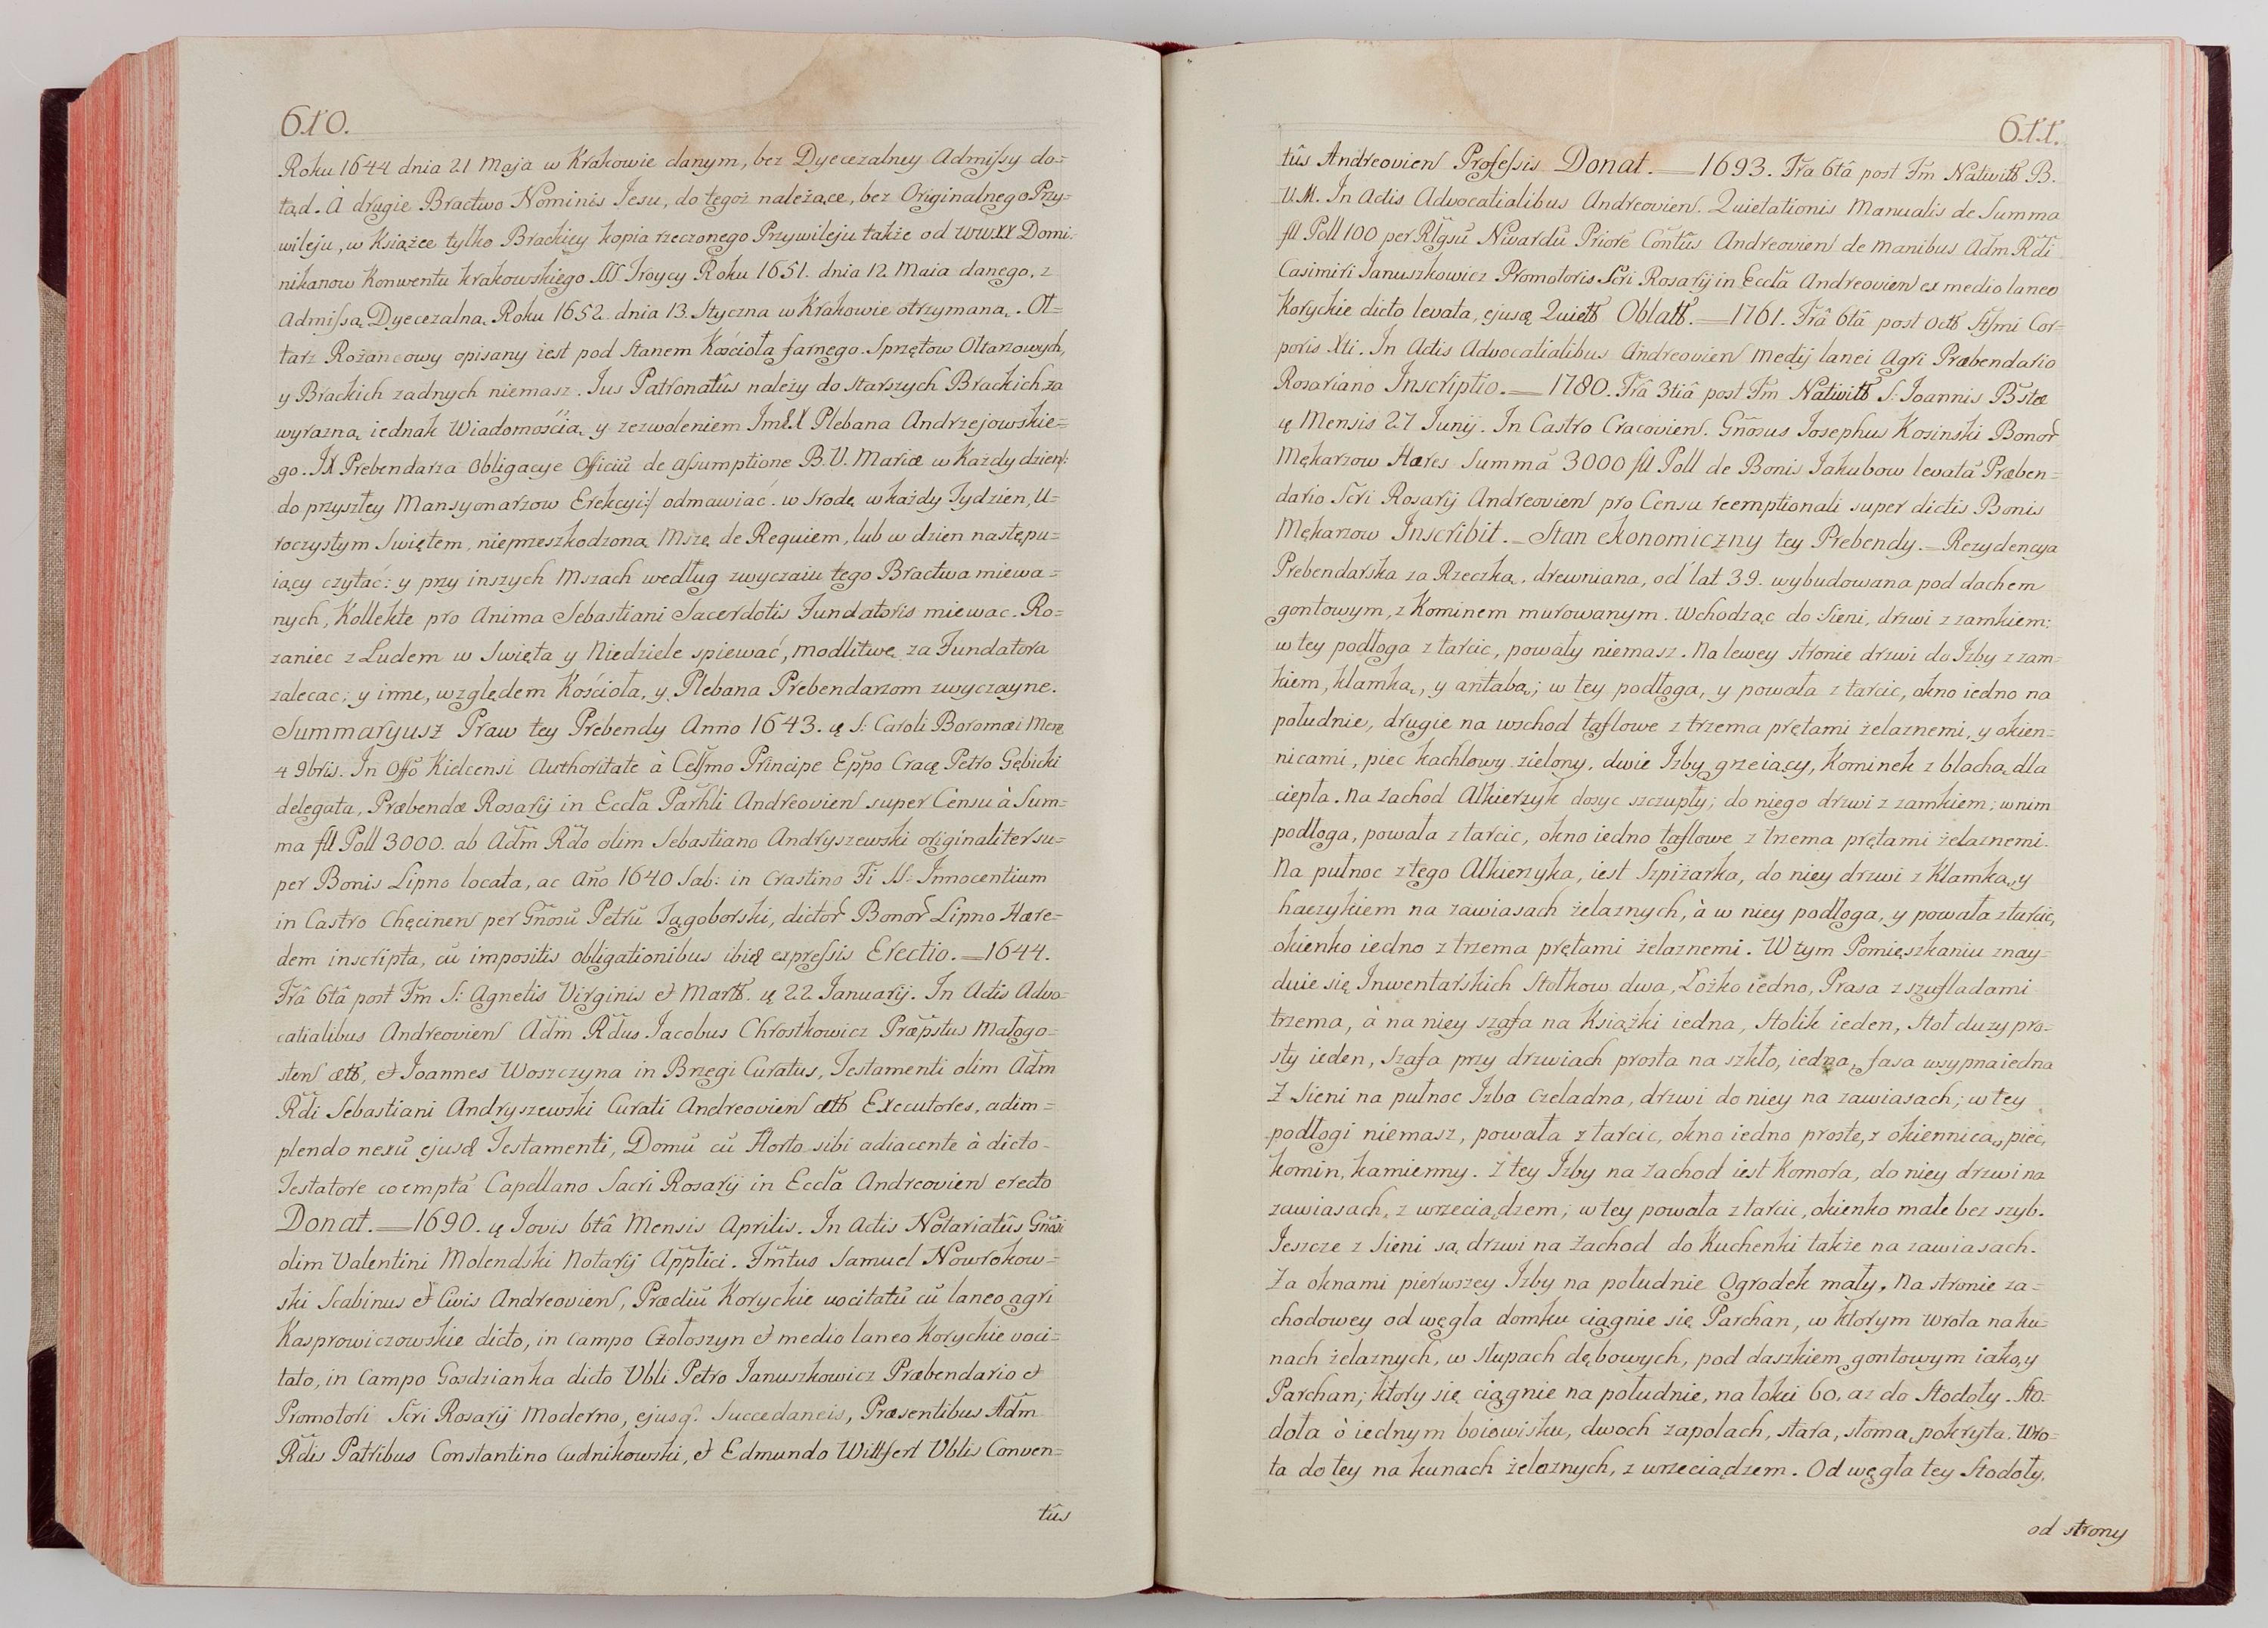 610.
Roku 1644 dnia 21 Maja w Krakowie danym, bez Dyecezalney Admissy do=
tąd. A drugie Bractwo Nominis Jesu, do tegoż należące, bez Originalnego Przy=
wileju, w Książce tylko Brackiey kopia rzeczonego Przywileju także od WWXX Domi.
nikanow Konwentu krakowskiego SS Troycy Roku 1651. dnia 12 Maia danego, z
Admissą Dyecezalną Roku 1652. dnia 13. Styczna w Krakowie otrzymaną. Oł=
tarz Rożancowy opisany iest pod Stanem Kościoła farnego. Sprzętow Ołtarzowych,
y Brackich zadnych niemasz. Jus Patronatûs należy do starszych Brackich za
wyrazną iednak Wiadomością y zezwoleniem JmłX Plebana Andrzejowskie=
go. JX Prebendarza Obligacye Officiũ de assumptione B.V. Mariæ w Każdy dzien/:
do przyszłey Mansyonarzow Erekcyi:/ odmawiać. w Srodę w każdy Tydzien, U=
roczystym Swiętem, nieprzeszkodzoną Mszę de Requiem, lub w dzien następu=
iący czytać: y przy inszych Mszach według zwyczaiu tego Bractwa miewa=
nych, Kollektę pro Anima Sebastiani Sacerdotis Fundatoris miewac. Ro=
zaniec z Ludem w Swięta y Niedziele spiewać, modlitwę za Fundatora
zalecac; y inne, względem Kościoła, y Plebana Prebendarzom zwyczayne.
Summaryusz Praw tey Prebendy Anno 1643. ę S: Caroli Boromæi Mere
4 9bris. In Offõ Kielcensi Authoritate à Celsm̃o Principe Eppo Cracę Petro Gębicki
delegata, Præbendæ Rosarÿ in Eccl̃a Par̃hli Andreovien super Censu à Sum=
ma fl Poll 3000. ab Adm̃ Rd̃o olim Sebastiano Andryszewski originaliter su=
per Bonis Lipno locata, ac Añ̃o 1640 Sab: in crastino Fi SS: Innocentium
in Castro Chęcinen per Gñosũ Petrũ Jagoborski, dictor̃ Bonor̃ Lipno Hære=
dem inscripta, cũ impositis obligationibus ibiđ expressis Erectio. = 1644.
Fr̃â 6tâ post Fm S: Agnetis Virginis et Martꝶ. ę 22 Januarÿ. In Actis Advo=
catialibus Andreovien Adm̃ Rd̃us Jacobus Chrostkowicz Præpstus Małogo=
sten ætꝶ, et Joannes Woszczyna in Brzegi Curatus, Testamenti olim Adm̃
Rd̃i Sebastiani Andryszewski Curati Andreovien ætꝶ Executores, adim=
plendo nexũ ejusđ Testamenti, Domũ cũ Horto sibi adiacente à dicto
Testatore coemptã Capellano Sacri Rosarÿ in Eccl̃a Andreovien erecto
Donat. = 1690. ę Jovis 6tâ Mensis Aprilis. In Actis Notariatûs Gñosi
olim Valentini Molendski Notarÿ Appl̃ici. Fm̃tus Samuel Nowrokow=
ski Scabinus et Civis Andreovien, Prædiũ Koryckie vocitatũ cũ laneo agri
Kasprowiczowskie dicto, in Campo Czołoszyn et medio laneo Koryckie voci=
tato, in Campo Gozdzianka dicto Vbli Petro Januszkowicz Præbendario et
Promotori Scri Rosarÿ Moderno, ejusq. Succedaneis, Præsentibus Adm
Rd̃is Patribus Constantino Cudnikowski, et Edmundo Wittfert Vblis Conven=
tûs
611.
tûs Andreovien Professis Donat. = 1693. Fr̃a 6tâ post Fm Nativitꝶ B.
V.M. In Actis Advocatialibus Andreovien. Quietationis Manualis de Summa
fl Poll 100 per Rlg̃sũ Nivardũ Priorẽ Coñtûs Andreovien de manibus Adm̃ Rd̃i
Casimiri Januszkowicz Promotoris Scri Rosarÿ in Eccl̃a Andreovien ex medio laneo
Koryckie dicto levata, ejusq Quietꝶ Oblatꝶ. = 1761. Fr̃â 6tâ post Octꝶ Ssmi Cor=
poris Xti. In Actis Advocatialibus Andreovien Medÿ lanei Agri Præbendario
Rosariano Inscriptio. = 1780. Fr̃â 3tiâ post Fm Nativitꝶ S: Joannis Bstæ
ę Mensis 27 Junÿ. In Castro Cracovien. Gñosus Josephus Kosinski Bonor̃
Mękarzow Hæres Summã 3000 fl Poll de Bonis Jakubow levatã Præben=
dario Scri Rosarÿ Andreovien pro Censu reemptionali super dictis Bonis
Mękarzow Inscribit. = Stan ekonomiczny tey Prebendy. = Rezydencya
Prebendarska za Rzeczką, drewniana, od lat 39. wybudowana pod dachem
gontowym, z Kominem murowanym. Wchodząc do Sieni, drzwi z zamkiem:
w tey podłoga z tarcic, powały niemasz. Na lewey stronie drzwi do Izby z zam=
kiem, klamką, y antabą; w tey podłoga, y powała z tarcic, okno iedno na
południe, drugie na wschod taflowe z trzema prętami żelaznemi, y okien=
nicami, piec kachlowy zielony, dwie Izby grzeiący, Kominek z blachą dla
ciepła. Na Zachod Alkierzyk dosyc szczupły; do niego drzwi z zamkiem; w nim
podłoga, powała z tarcic, okno iedno taflowe z trzema prętami żelaznemi.
Na pułnoc z tego Alkierzyka, iest Szpiżarka, do niey drzwi z Klamką, y
haczykiem na zawiasach żelaznych, à w niey podłoga, y powała z tarcic,
okienko iedno z trzema prętami żelaznemi. W tym Pomięszkaniu znay=
duie się Inwentarskich Stołkow dwa, Łożko iedno, Prasa z szufladami
trzema, à na niey szafa na Książki iedna, Stolik ieden, Stoł duzy pro=
sty ieden, Szafa przy drzwiach prosta na szkło, iedna, fasa wsypna iedna
Z Sieni na pułnoc Izba Czeladna, drzwi do niey na zawiasach; w tey
podłogi niemasz, powała z tarcic, okno iedno proste, z okiennicą, piec,
komin, kamienny. Z tey Izby na Zachod iest Komora, do niey drzwi na
zawiasach, z wrzeciądzem; w tey powała z tarcic, okienko małe bez szyb.
Jeszcze z Sieni są drzwi na Zachod do Kuchenki także na zawiasach.
Za oknami pierwszey Izby na południe Ogrodek mały. Na stronie za=
chodowey od węgła domku ciągnie się Parchan, w ktorym Wrota na ku=
nach żelaznych, w słupach dębowych, pod daszkiem gontowym iako, y
Parchan; ktory się ciągnie na południe, na łokci 60. az do Stodoły. Sto=
doła ò iednym boiowisku, dwoch zapolach, stara, słomą pokryta. Wro=
ta do tey na kunach żelaznych, z wrzeciądzem. Od węgła tey Stodoły,
od strony